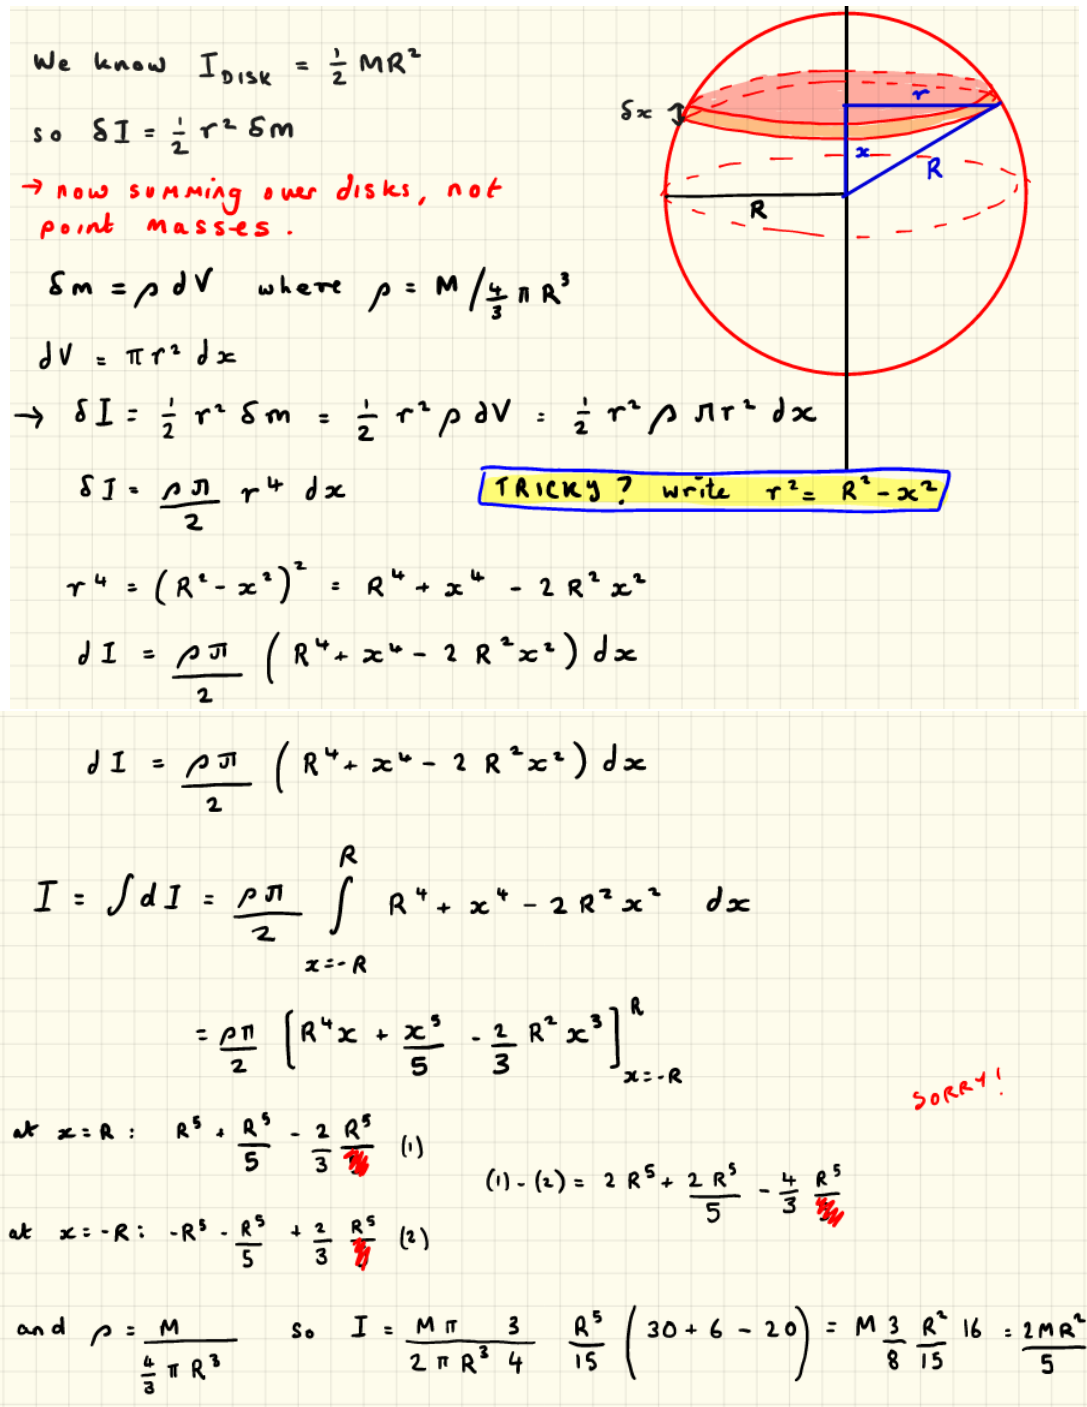 We know I_DISK = 1/2 MR²
so δI = 1/2 r² δm
→ now summing over disks, not
point masses.
δx
r
x
R
R
δm = ρ dV where ρ = M / 4/3 π R³
dV = π r² dx
→ δI = 1/2 r² δm = 1/2 r² ρ dV = 1/2 r² ρ π r² dx
δI = ρπ/2 r⁴ dx
TRICKY? write r² = R² - x²
r⁴ = (R² - x²)² = R⁴ + x⁴ - 2 R² x²
dI = ρπ/2 (R⁴ + x⁴ - 2 R² x²) dx
dI = ρπ/2 (R⁴ + x⁴ - 2 R² x²) dx
I = ∫dI = ρπ/2 ∫_{x=-R}^{R} R⁴ + x⁴ - 2 R² x² dx
= ρπ/2 [R⁴x + x⁵/5 - 2/3 R² x³]_{x=-R}^{R}
SORRY!
at x = R : R⁵ + R⁵/5 - 2/3 R⁵ (1)
(1) - (2) = 2 R⁵ + 2 R⁵/5 - 4/3 R⁵
at x = -R : -R⁵ - R⁵/5 + 2/3 R⁵ (2)
and ρ = M / 4/3 π R³ so I = Mπ 3 / 2 π R³ 4 R⁵/15 (30 + 6 - 20) = M 3/8 R²/15 16 = 2MR²/5